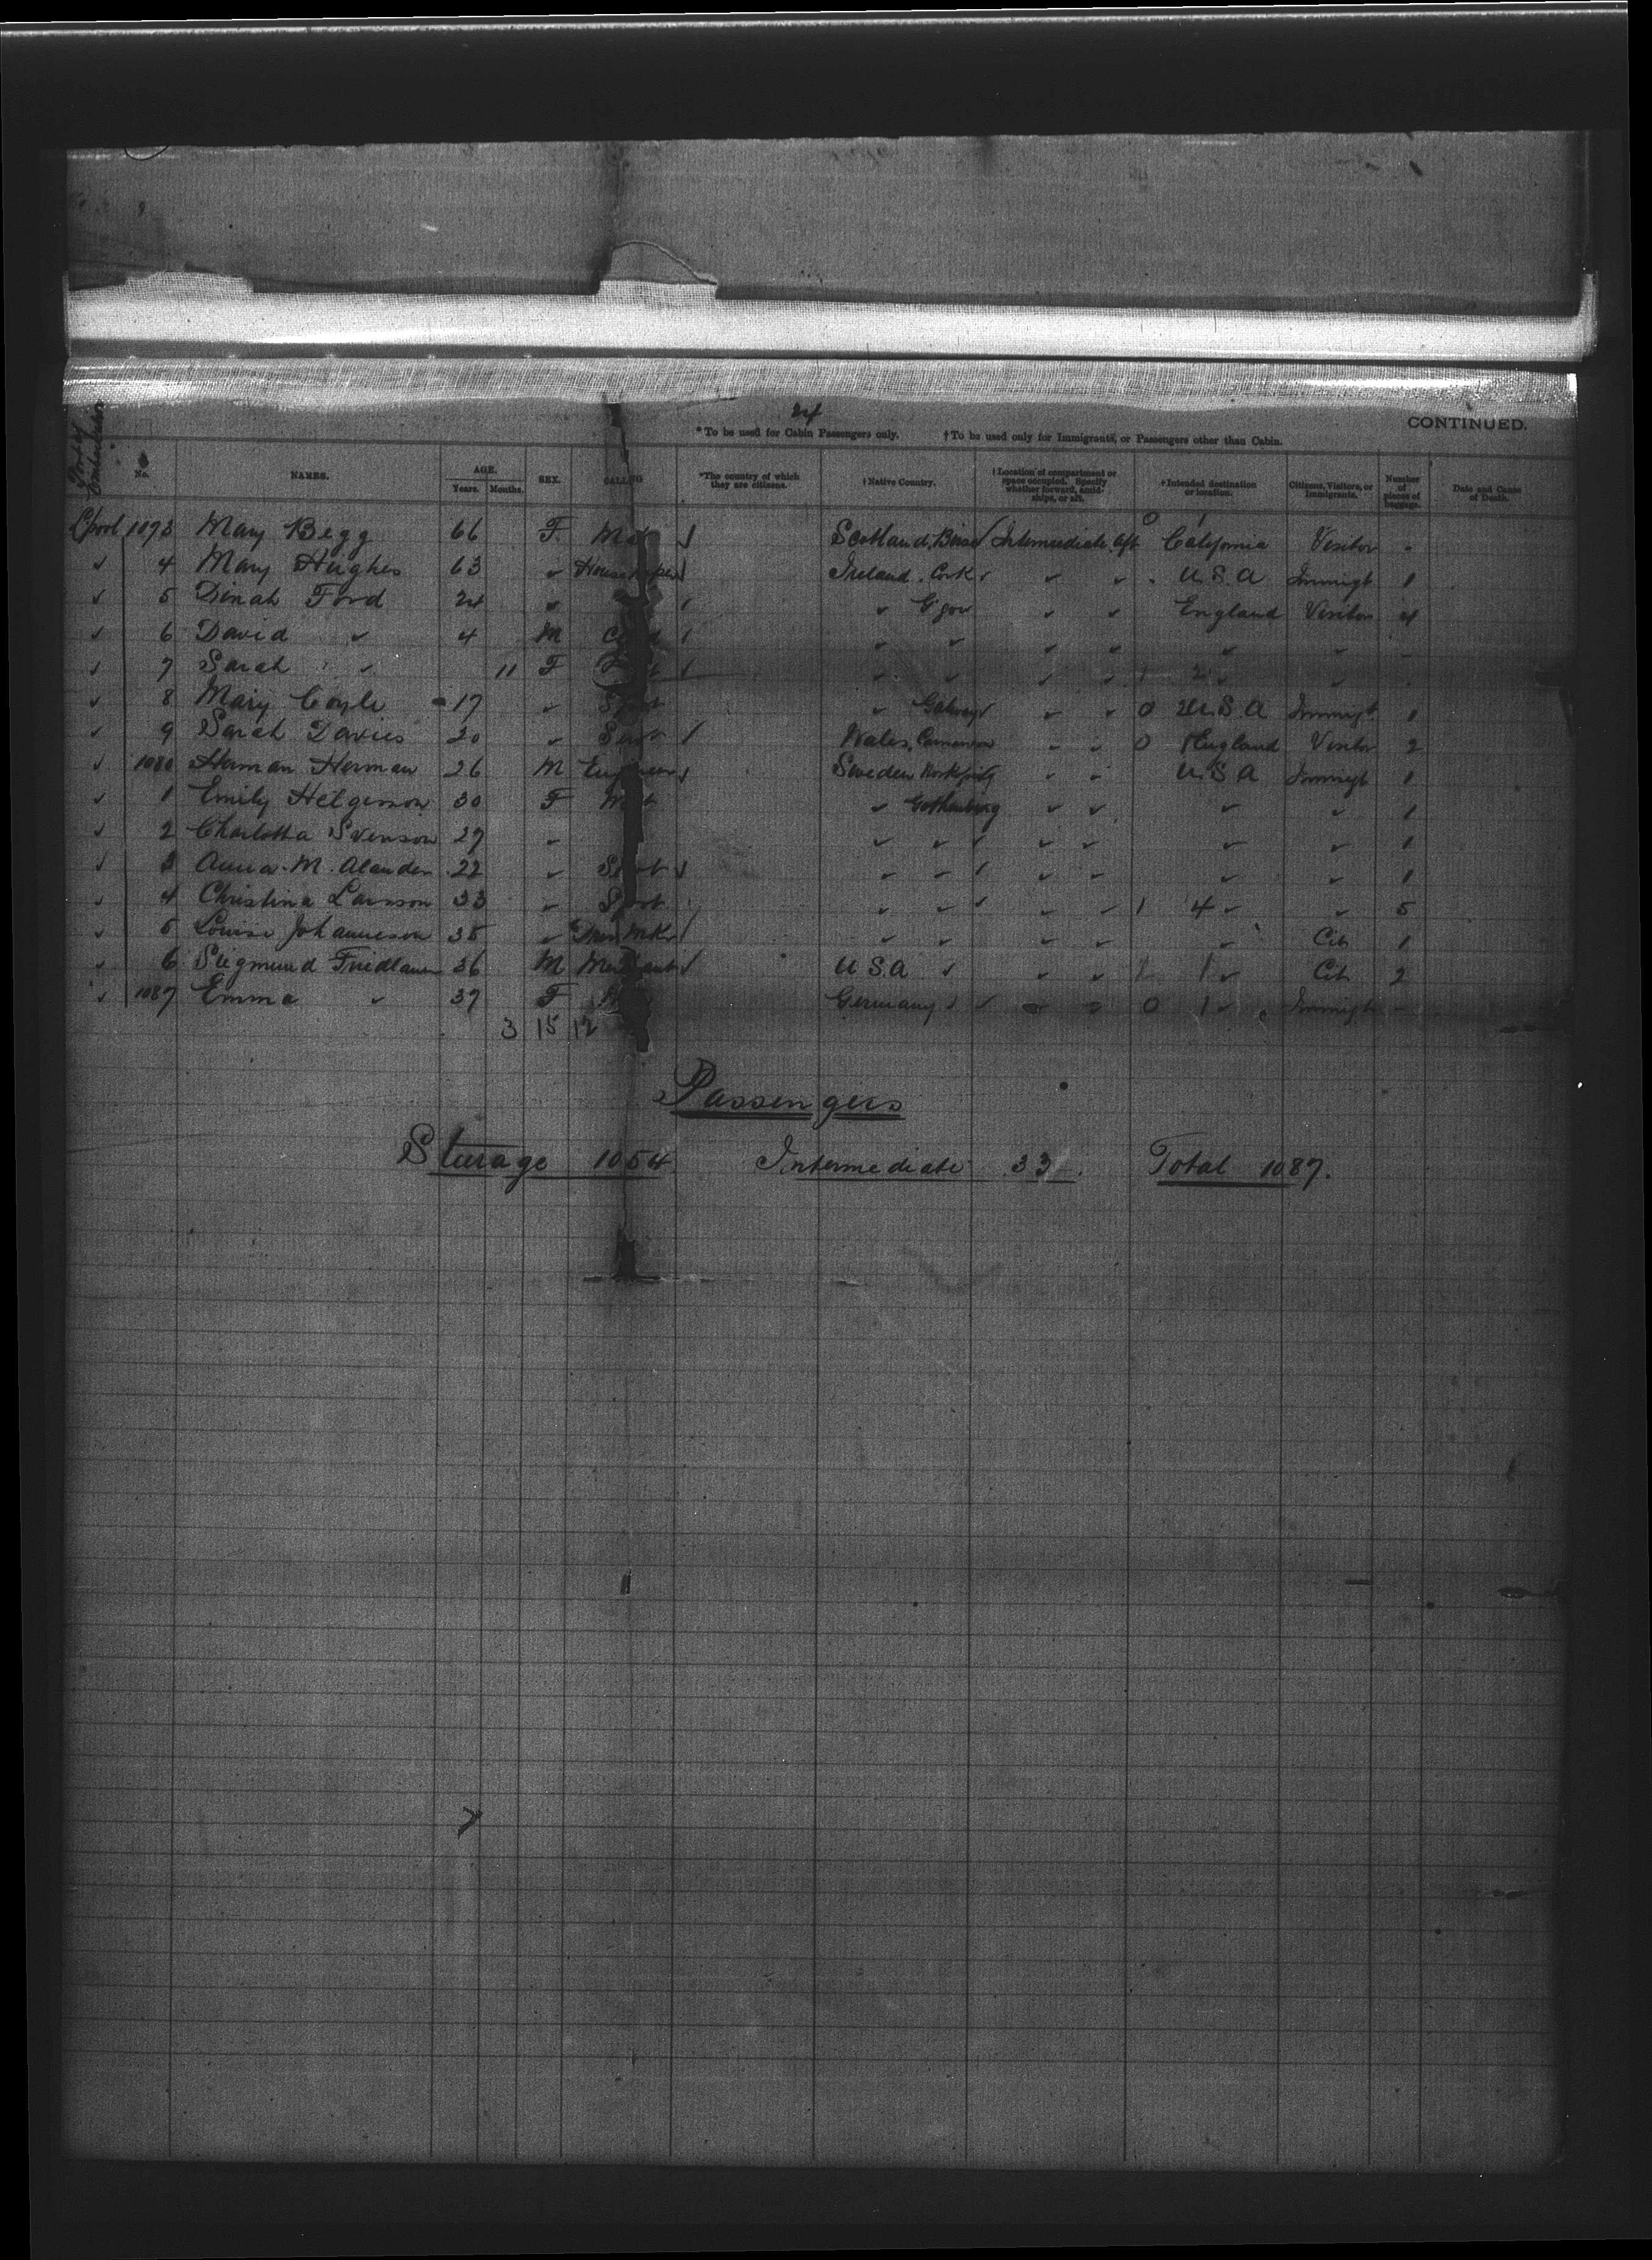 24
CONTINUED.
* To be used for Cabin Passengers only. † To be used only for Immigrants, or Passengers other than Cabin.
Port of Embarkation No. NAMES. AGE. Years. Months. SEX. CALLING *The country of which they are citizens. † Native Country. † Location of compartment or space occupied. Specify whether forward, amidships, or aft. † Intended destination or location. Citizens, Visitors, or Immigrants. Number of pieces of baggage. Date and Cause of Death.
L'pool 1073 Mary Begg 66 F. Scotland, Intermediate Aft California Visitor -
✓ 4 Mary Hughes 63 ✓ Ireland. Cork ✓ ✓ ✓ U.S.A Immigt 1
✓ 5 Dinah Ford 24 ✓ ✓ G'gow ✓ ✓ England Visitor 4
✓ 6 David ✓ 4 M ✓ ✓ ✓ ✓ ✓ ✓ -
✓ 7 Sarah ✓ 11 F ✓ ✓ ✓ ✓ 1 2 ✓ ✓
✓ 8 Mary Coyle 17 ✓ ✓ Galway ✓ ✓ 0 2 U.S.A Immigt 1
✓ 9 Sarah Davies 20 ✓ Wales, ✓ ✓ 0 1 England Visitor 2
✓ 1080 Herman Herman 26 M Sweden ✓ ✓ U.S.A Immigt 1
✓ 1 Emily Helgerson 30 F ✓ Gothenburg ✓ ✓ ✓ ✓ 1
✓ 2 Charlotta Svenson 27 ✓ ✓ ✓ ✓ ✓ ✓ ✓ 1
✓ 3 Anna M. Alander 22 ✓ ✓ ✓ ✓ ✓ ✓ ✓ 1
✓ 4 Christina Larsson 33 ✓ ✓ ✓ ✓ ✓ 1 4 ✓ ✓ 5
✓ 5 Louise Johanneson 35 ✓ ✓ ✓ ✓ ✓ ✓ Cit 1
✓ 6 Siegmund 36 M Merchant U.S.A ✓ ✓ 1 1 ✓ Cit 2
✓ 1087 Emma ✓ 37 F Germany ✓ ✓ 0 1 ✓ Immigt -
3 15 12
Passengers
Steerage 1054 Intermediate 33. Total 1087.